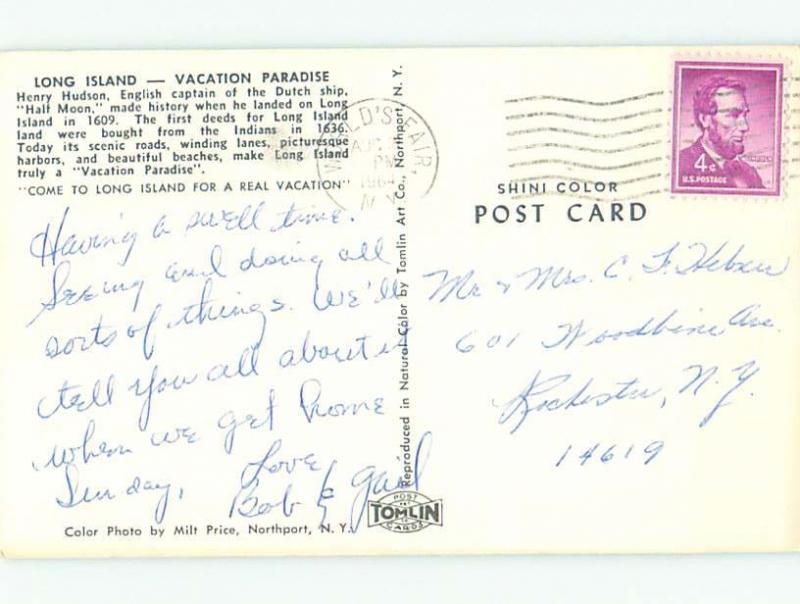 LONG ISLAND — VACATION PARADISE
Henry Hudson, English captain of the Dutch ship,
"Half Moon," made history when he landed on Long
Island in 1609. The first deeds for Long Island
land were bought from the Indians in 1636.
Today its scenic roads, winding lanes, picturesque
harbors, and beautiful beaches, make Long Island
truly a "Vacation Paradise".
"COME TO LONG ISLAND FOR A REAL VACATION"
Having a swell time.
Seeing and doing all
sorts of things. We'll
tell you all about it
when we get home
Sunday.
Love
Bob & Gail
Color Photo by Milt Price, Northport, N. Y.
Reproduced in Natural Color by Tomlin Art Co., Northport, N. Y.
POST
TOMLIN
CARDS
WORLD'S FAIR,
AUG
PM
1964
N.Y.
4¢
U.S. POSTAGE
SHINI COLOR
POST CARD
Mr & Mrs. C. F.
601 Woodbine Ave.
Rochester, N.Y.
14619